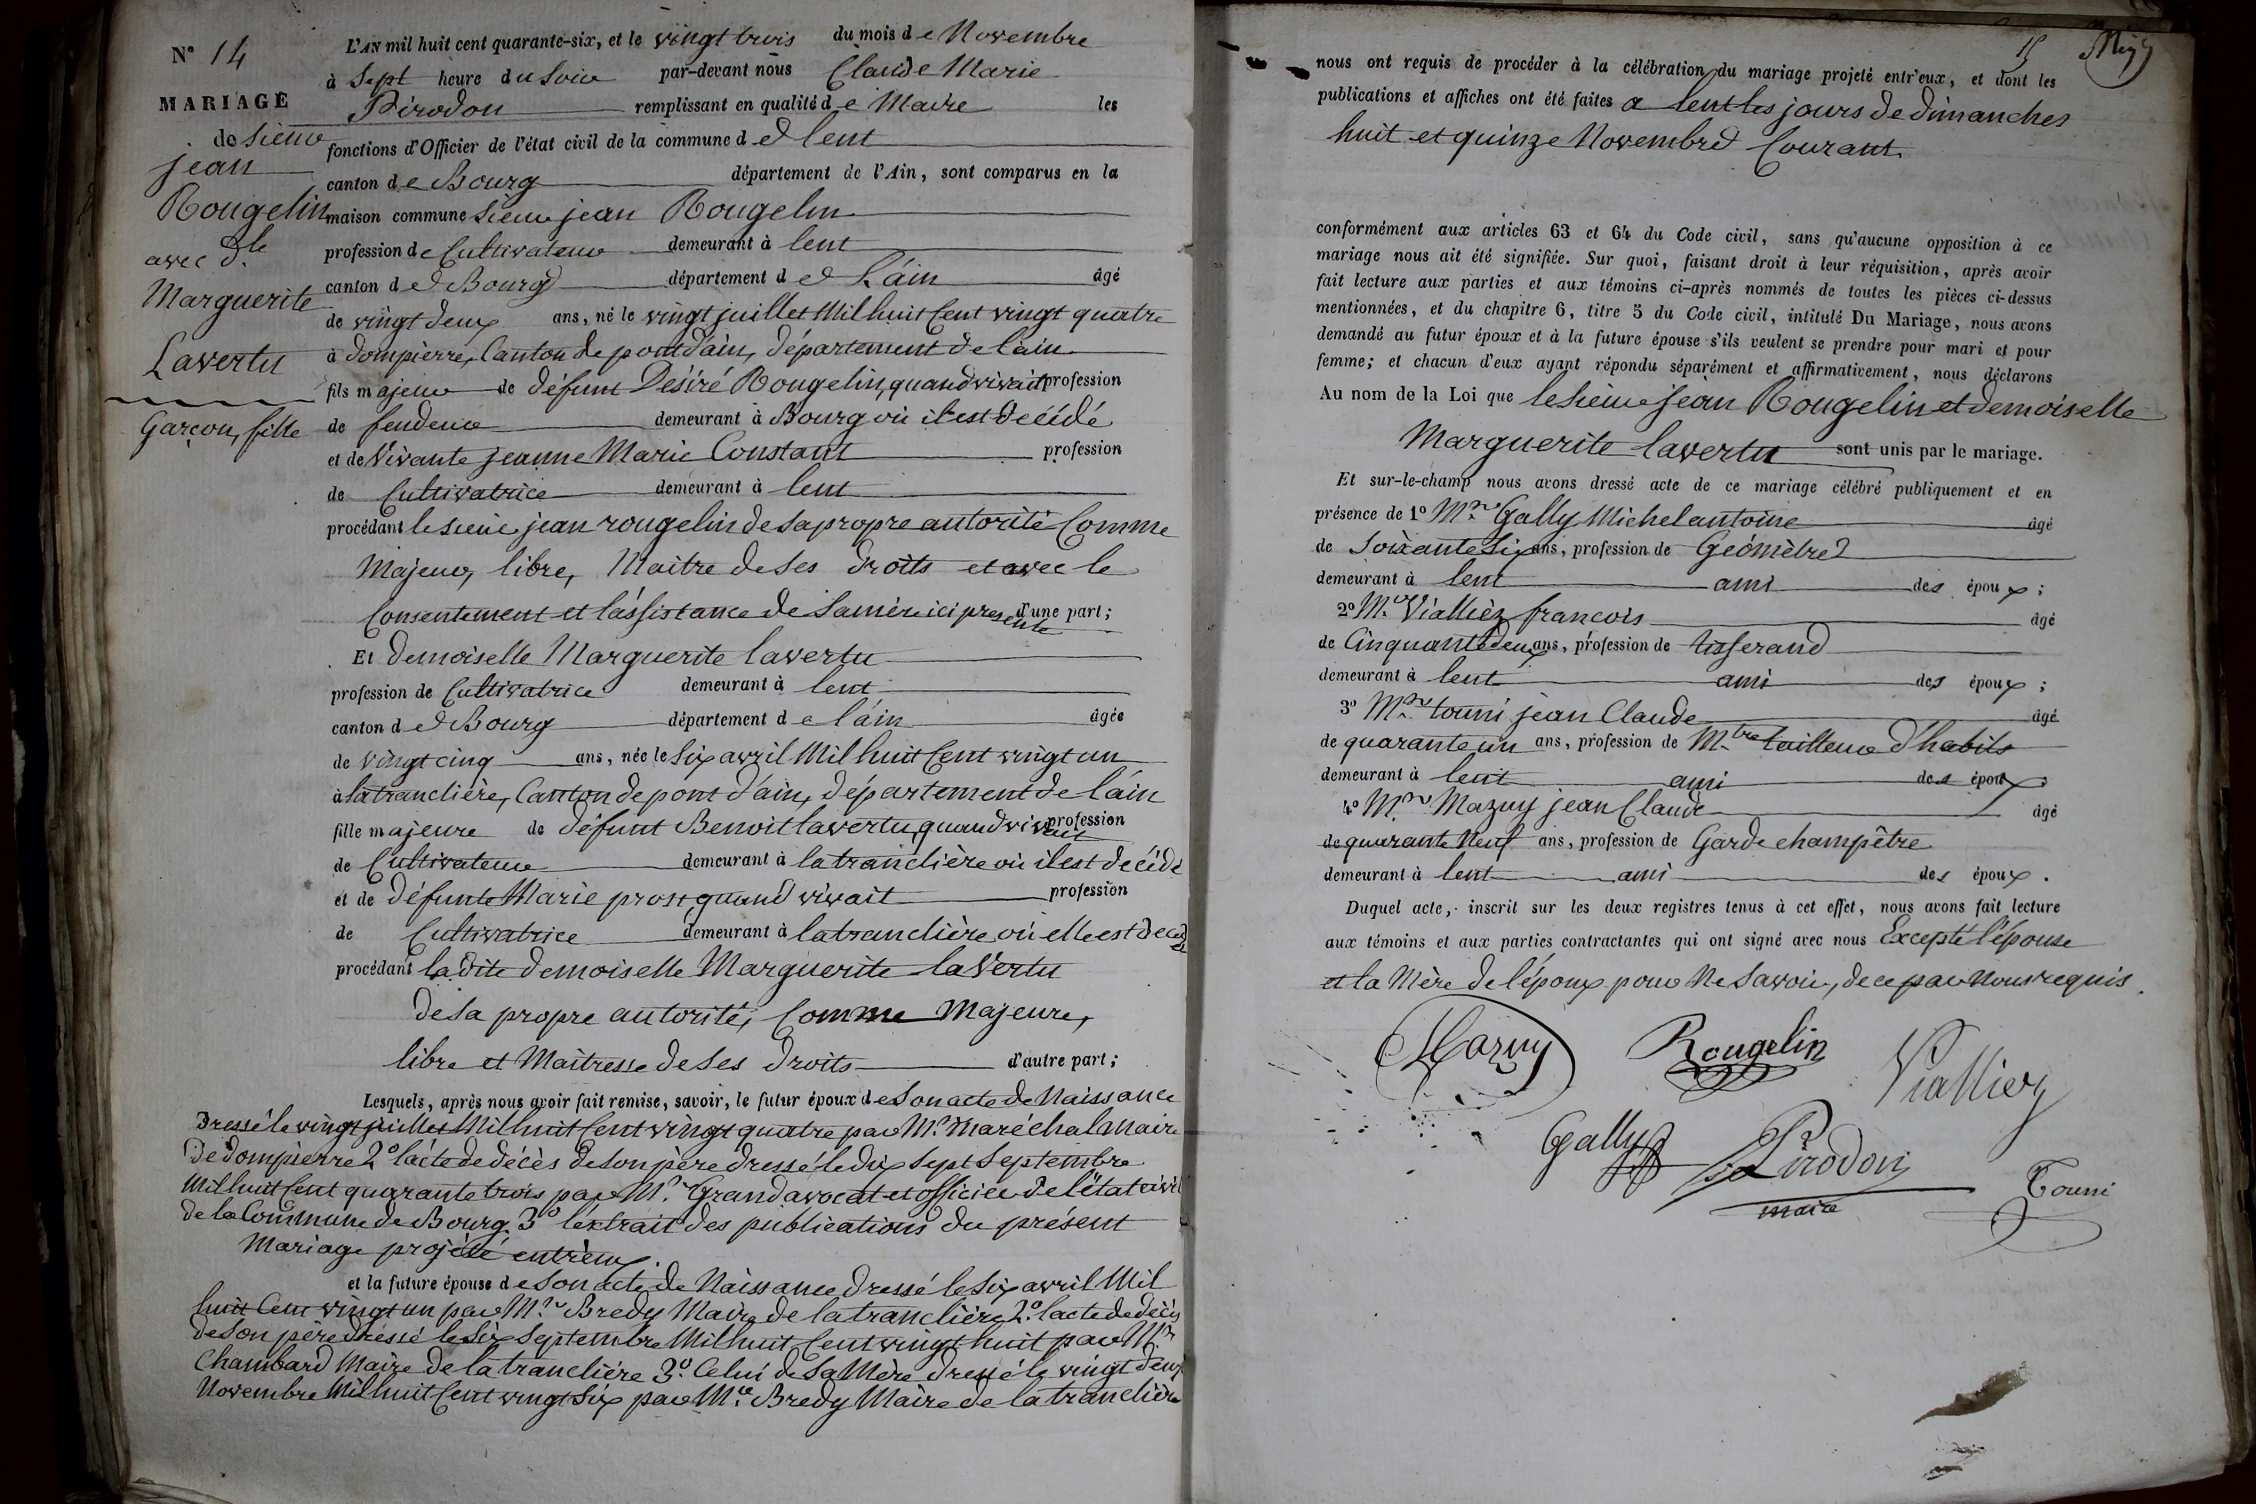 N° 14
MARIAGE
de sieur
jean
Rougelin
avec dle
Marguerite
Lavertu
Garçon, fille
L'AN mil huit cent quarante-six, et le vingt trois du mois de Novembre
à Sept heure du Soir par-devant nous Claude Marie
Pirodon remplissant en qualité de Maire les
fonctions d'Officier de l'état civil de la commune de lent
canton de Bourg département de l'Ain, sont comparus en la
maison commune Sieur jean Rougelin
profession de Cultivateur demeurant à lent
canton de Bourg département de L'ain âgé
de vingt deux ans, né le vingt juillet Mil huit Cent vingt quatre
à dompierre, Canton de pont d'ain, département de l'ain
fils majeur de défunt Désiré Rougelin, quand vivait profession
de fendeur demeurant à Bourg où il est décédé
et de Vivante jeanne Marie Constant profession
de Cultivatrice demeurant à lent
procédant le sieur jean rougelin de sa propre autorité Comme
Majeur, libre, Maitre de Ses droits et avec le
Consentement et l'assistance de Samère ici presente d'une part;
Et demoiselle Marguerite lavertu
profession de Cultivatrice demeurant à lent
canton de Bourg département de l'ain âgée
de vingt cinq ans, née le Six avril Mil huit Cent vingt un
à latranclière, Canton de pont d'ain, département de l'ain
fille majeure de défunt Benoit lavertu, quand vivait profession
de Cultivateur demeurant à la tranclière où il est décédé
et de défunte Marie prost, quand vivait profession
de Cultivatrice demeurant à latranclière où elle est décédé
procédant la dite demoiselle Marguerite laVertu
de Sa propre autorité, Comme Majeure,
libre et Maitresse de Ses droits d'autre part;
Lesquels, après nous avoir fait remise, savoir, le futur époux de Son acte de Naissance
Dressé le vingt juillet Mil huit Cent vingt quatre par Mr Maréchal Maire
de dompierre 2° l'acte de décès de Son père dressé le dix Sept Septembre
Mil huit Cent quarante trois par Mr Grand avocat et officier de l'état civil
de la Commune de Bourg. 3° l'extrait des publications du présent
Mariage projété entr'eux.
et la future épouse de Son acte de Naissance dressé le Six avril Mil
huit Cent vingt un par Mr Bredy Maire de la tranclière 2° l'acte de décès
de Son père dressé le Six Septembre Mil huit Cent vingt huit par Mr
Chambard Maire de la tranclière 3° Celui de Sa Mère dressé le vingt deux
Novembre Mil huit Cent vingt Six par Mr Bredy Maire de la tranclière
15
nous ont requis de procéder à la célébration du mariage projeté entr'eux, et dont les
publications et affiches ont été faites a lent les jours de dimanches
huit et quinze Novembre Courant
conformément aux articles 63 et 64 du Code civil, sans qu'aucune opposition à ce
mariage nous ait été signifiée. Sur quoi, faisant droit à leur réquisition, après avoir
fait lecture aux parties et aux témoins ci-après nommés de toutes les pièces ci-dessus
mentionnées, et du chapitre 6, titre 5 du Code civil, intitulé Du Mariage, nous avons
demandé au futur époux et à la future épouse s'ils veulent se prendre pour mari et pour
femme; et chacun d'eux ayant répondu séparément et affirmativement, nous déclarons
Au nom de la Loi que le Sieur jean Rougelin et demoiselle
Marguerite lavertu sont unis par le mariage.
Et sur-le-champ nous avons dressé acte de ce mariage célébré publiquement et en
présence de 1° Mr Gally Michel antoine âgé
de Soixante Six ans, profession de Géomètre
demeurant à lent ami des époux;
2° Mr Viallier francois âgé
de Cinquante deux ans, profession de tisserand
demeurant à lent ami des époux;
3° Mr touni jean Claude âgé
de quarante un ans, profession de Mtre tailleur d'habits
demeurant à lent ami des époux
4° Mr Mazuy jean Claude âgé
de quarante Neuf ans, profession de Garde champêtre
demeurant à lent ami des époux.
Duquel acte, inscrit sur les deux registres tenus à cet effet, nous avons fait lecture
aux témoins et aux parties contractantes qui ont signé avec nous Excepté l'épouse
et la Mère de l'époux pour Ne Savoir, de ce par Nous requis.
Mazuy Rougelin Viallier
Gally Pirodon Touni
maire